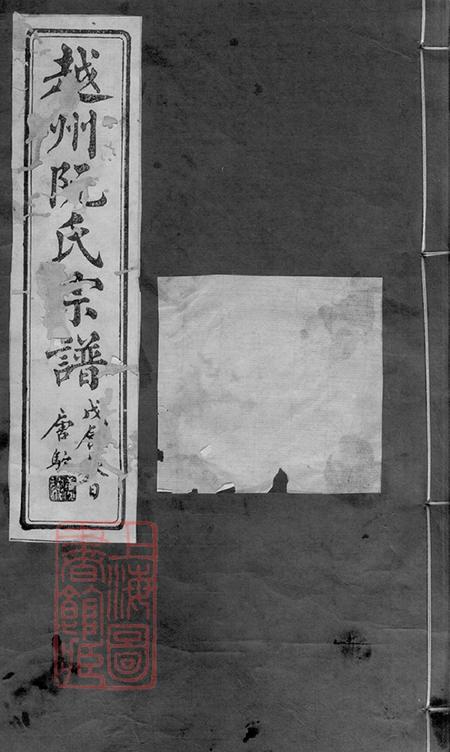 越州阮氏宗譜
戊辰
唐駝
上海圖
書館藏